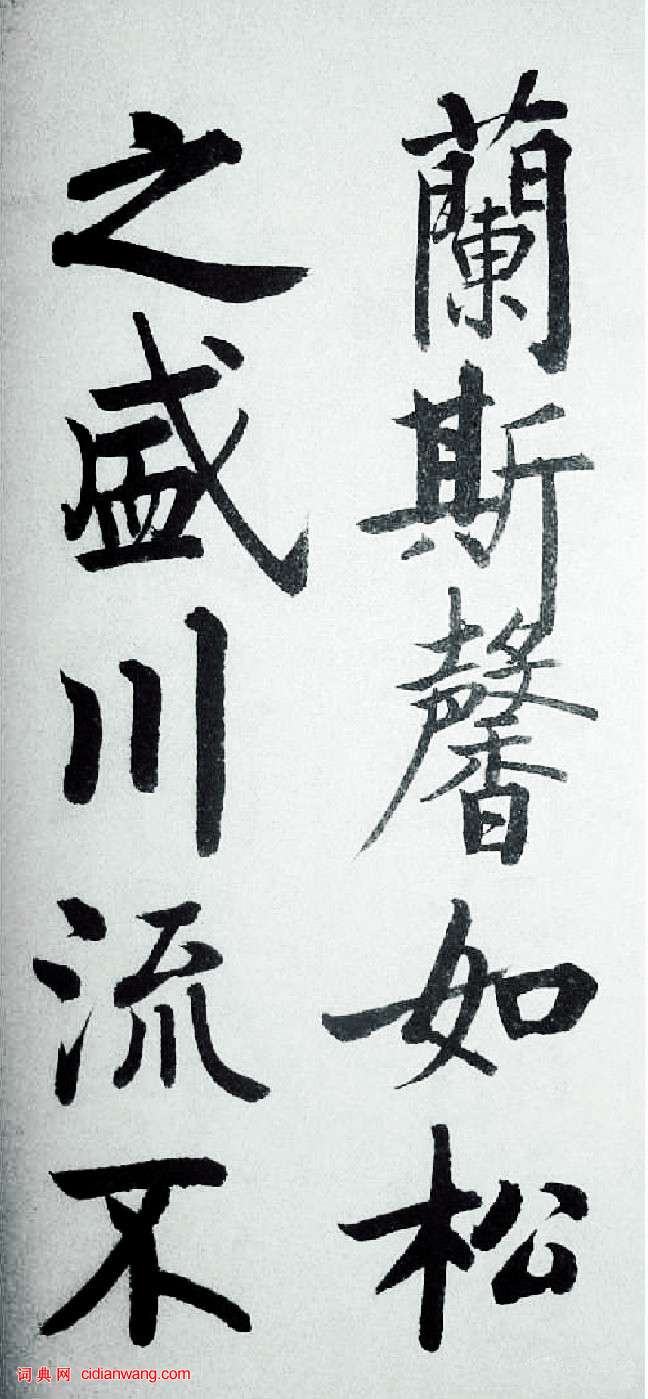 蘭斯馨如松
之盛川流不
词典网 cidianwang.com